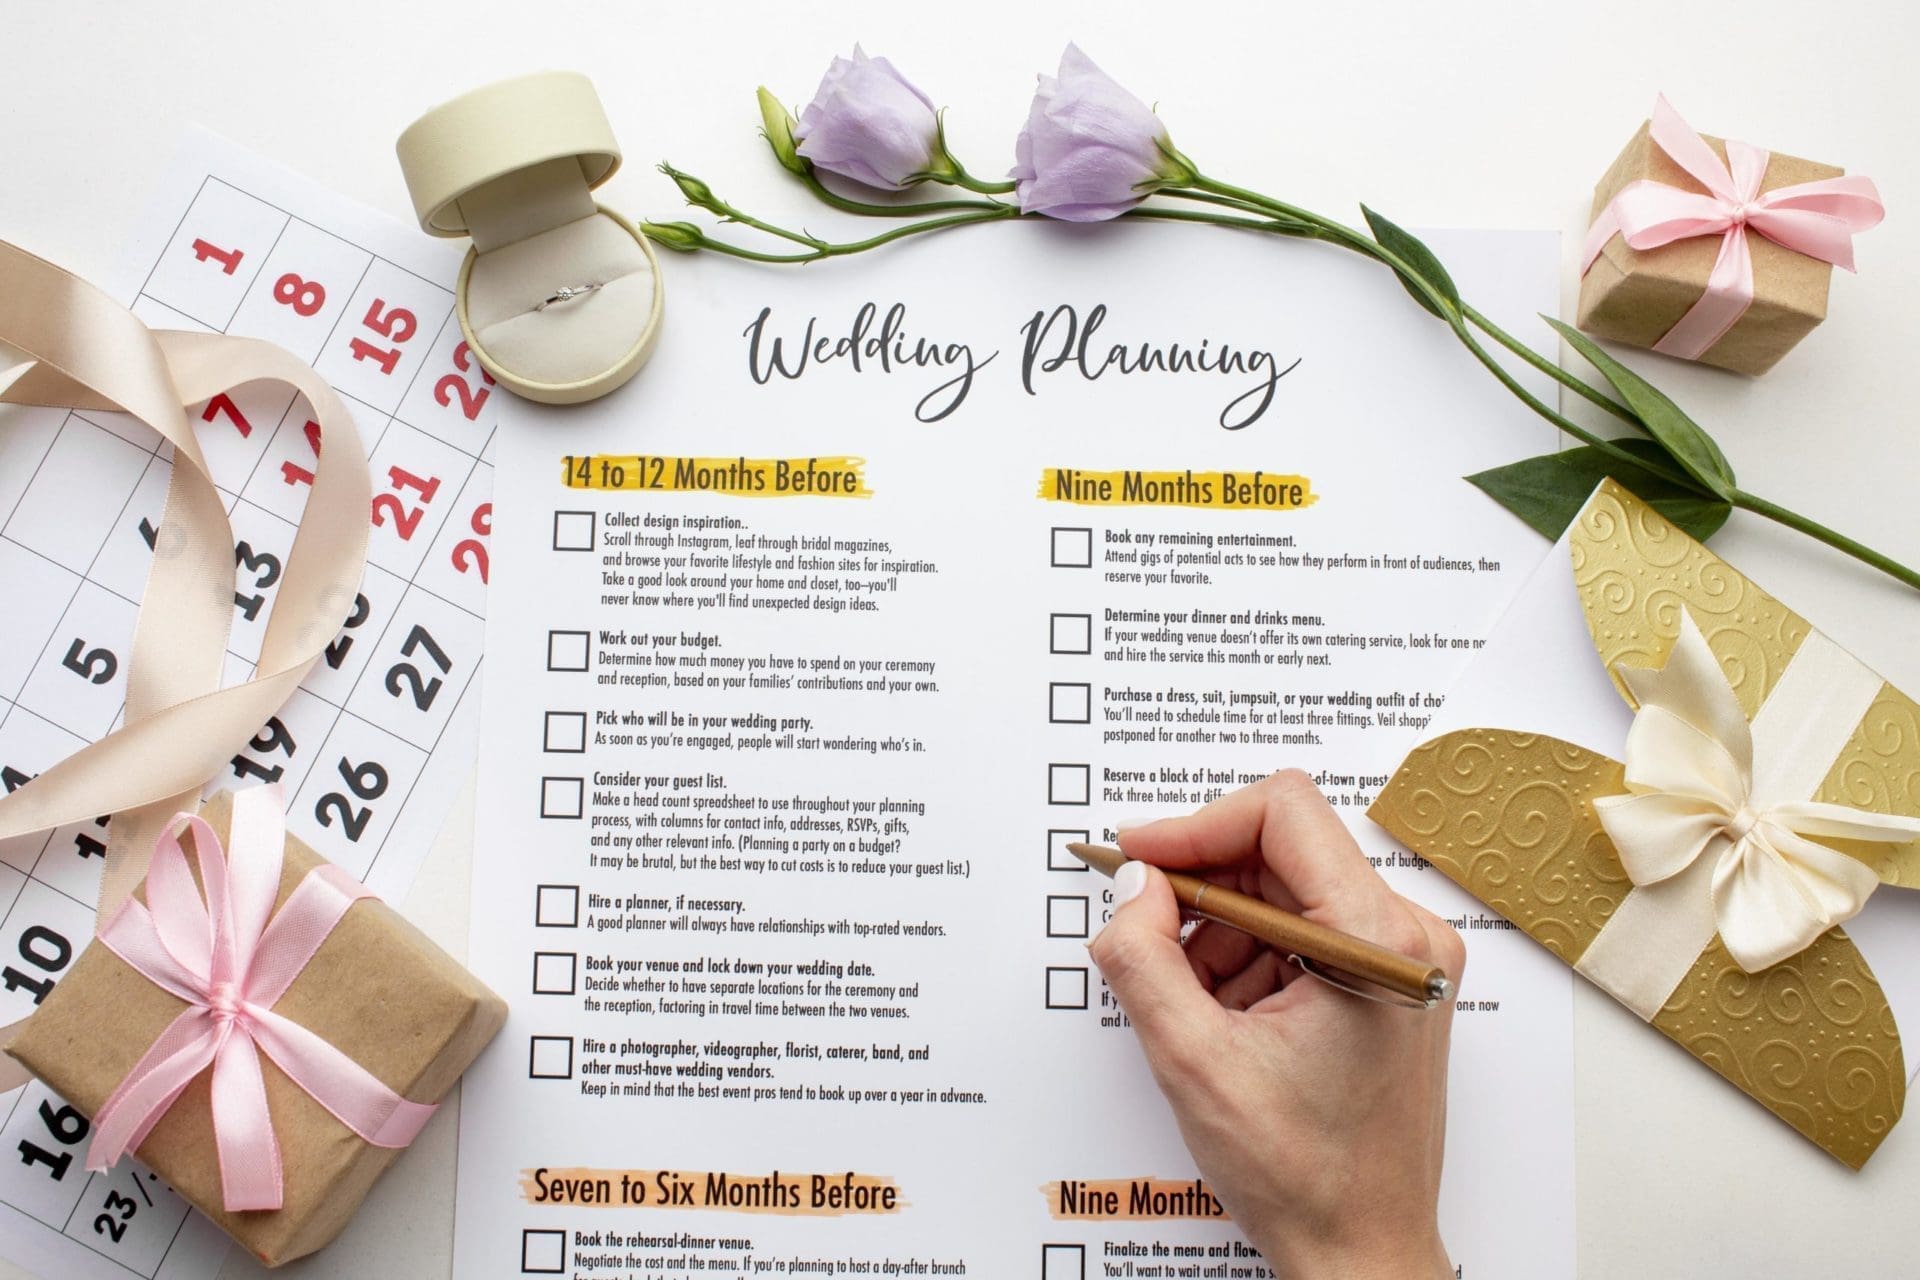 Wedding Planning
14 to 12 Months Before
Collect design inspiration..
Scroll through Instagram, leaf through bridal magazines,
and browse your favorite lifestyle and fashion sites for inspiration.
Take a good look around your home and closet, too—you'll
never know where you'll find unexpected design ideas.
Work out your budget.
Determine how much money you have to spend on your ceremony
and reception, based on your families' contributions and your own.
Pick who will be in your wedding party.
As soon as you're engaged, people will start wondering who's in.
Consider your guest list.
Make a head count spreadsheet to use throughout your planning
process, with columns for contact info, addresses, RSVPs, gifts,
and any other relevant info. (Planning a party on a budget?
It may be brutal, but the best way to cut costs is to reduce your guest list.)
Hire a planner, if necessary.
A good planner will always have relationships with top-rated vendors.
Book your venue and lock down your wedding date.
Decide whether to have separate locations for the ceremony and
the reception, factoring in travel time between the two venues.
Hire a photographer, videographer, florist, caterer, band, and
other must-have wedding vendors.
Keep in mind that the best event pros tend to book up over a year in advance.
Seven to Six Months Before
Book the rehearsal-dinner venue.
Negotiate the cost and the menu. If you're planning to host a day-after brunch
Nine Months Before
Book any remaining entertainment.
Attend gigs of potential acts to see how they perform in front of audiences, then
reserve your favorite.
Determine your dinner and drinks menu.
If your wedding venue doesn't offer its own catering service, look for one
and hire the service this month or early next.
Purchase a dress, suit, jumpsuit, or your wedding outfit of
You'll need to schedule time for at least three fittings. Veil
postponed for another two to three months.
Reserve a block of hotel of-town
Pick three hotels at to the
of
If
and
one now
Nine Months
Finalize the menu and
You'll want to wait until now to
1 8 15 22
7 14 21 28
6 13 20 27
5 19 26
10
16
23/